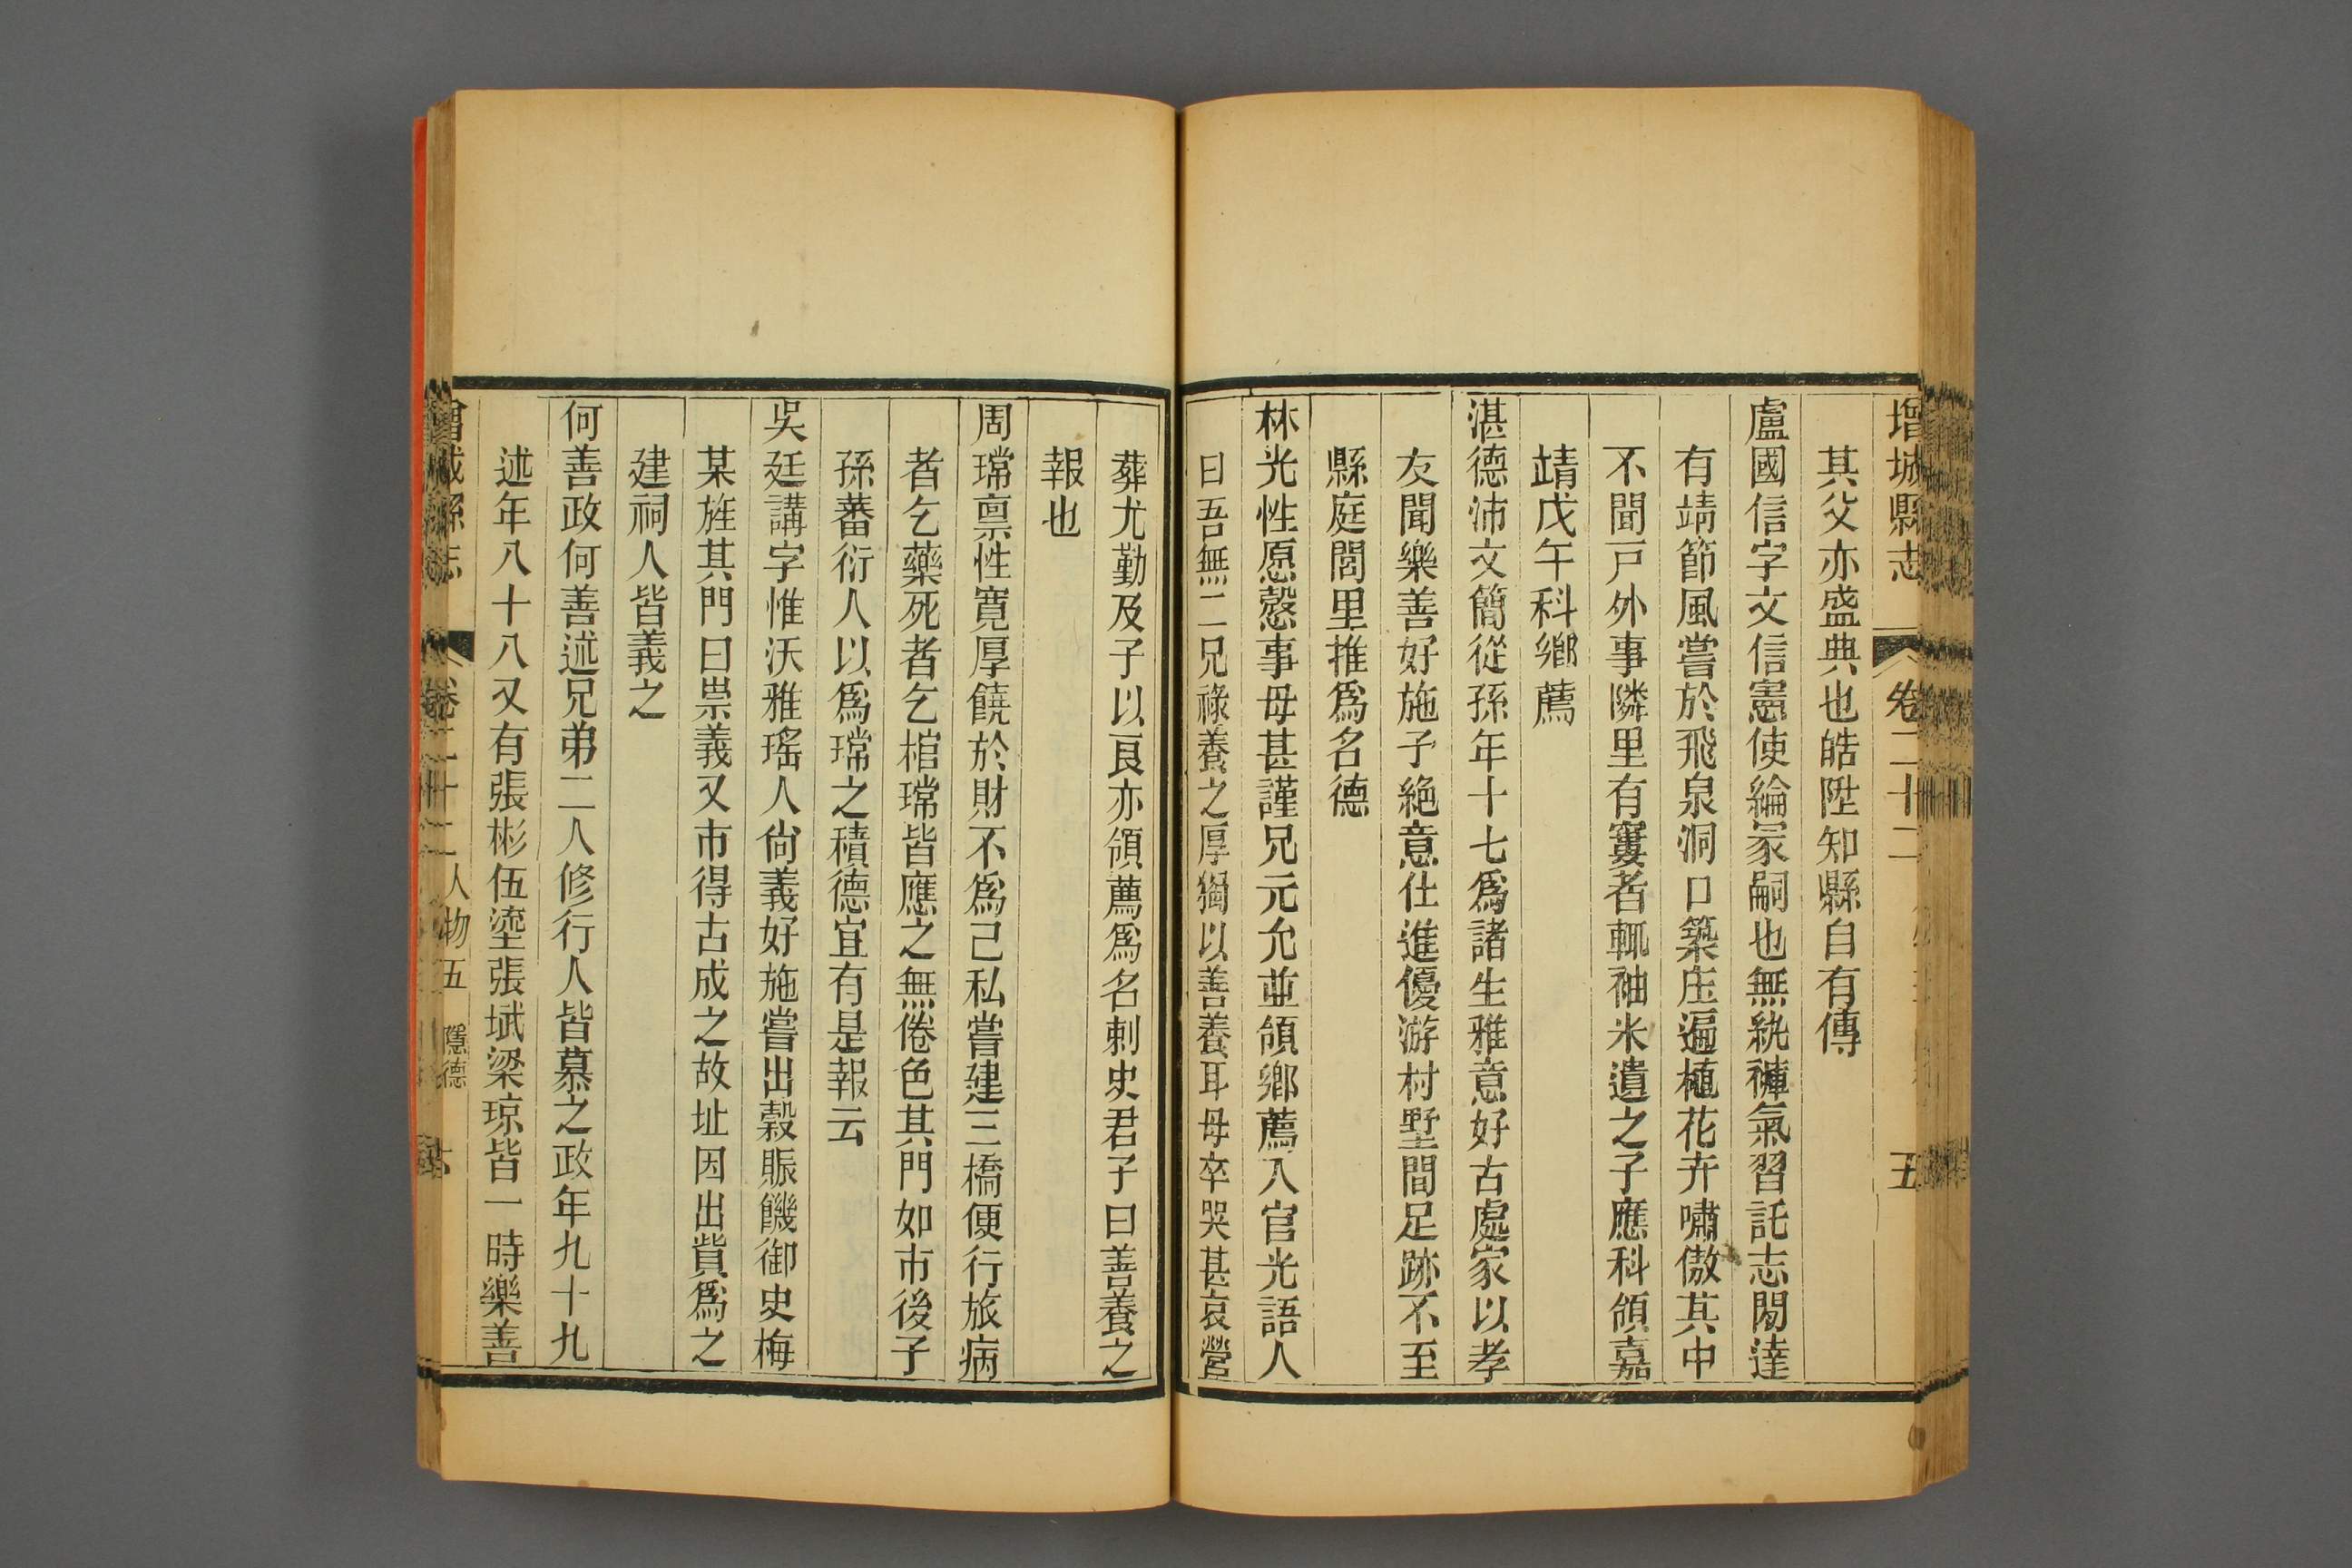 增城縣志 卷二十二 五
其父亦盛典也皓陞知縣自有傳
盧國信字文信憲使綸冢嗣也無紈褲氣習託志閎達
有靖節風嘗於飛泉洞口築庄遍植花卉嘯傲其中
不聞戸外事隣里有窶者輒袖米遺之子應科領嘉
靖戊午科鄉薦
湛德沛文簡從孫年十七爲諸生雅意好古處家以孝
友聞樂善好施子絶意仕進優游村墅間足跡不至
縣庭閭里推爲名德
林光性愿慤事母甚謹兄元允並領鄉薦入官光語人
曰吾無二兄祿養之厚獨以善養耳母卒哭甚哀營
葬尤勤及子以良亦領薦爲名刺史君子曰善養之
報也
周瑺禀性寬厚饒於財不爲己私嘗建三橋便行旅病
者乞藥死者乞棺瑺皆應之無倦色其門如市後子
孫蕃衍人以爲瑺之積德宜有是報云
吳廷講字惟沃雅瑤人尙義好施嘗出穀賑饑御史梅
某旌其門曰崇義又市得古成之故址因出貲爲之
建祠人皆義之
何善政何善述兄弟二人修行人皆慕之政年九十九
述年八十八又有張彬伍塗張珷梁琼皆一時樂善
增城縣志 卷二十二 人物五 隱德 六